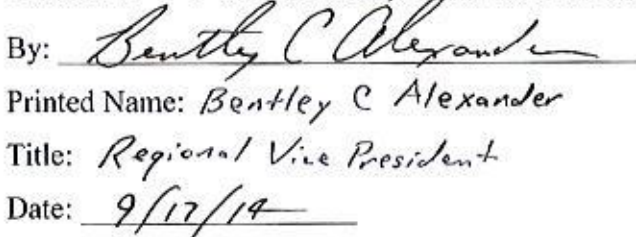 By: Bentley C Alexander
Printed Name: Bentley C Alexander
Title: Regional Vice President
Date: 9/17/14